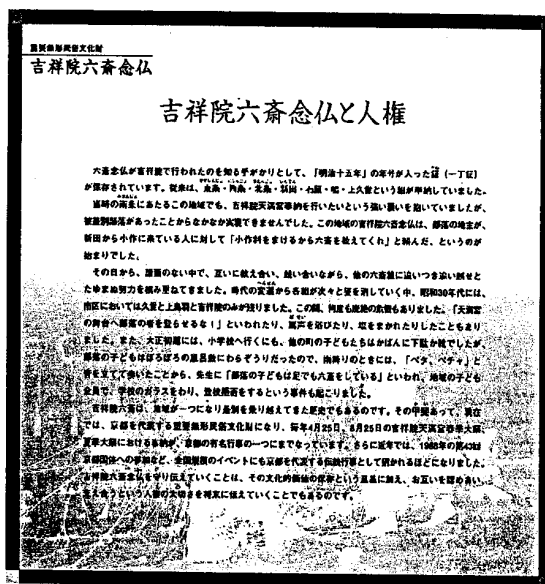 重要無形民俗文化財
吉祥院六斎念仏
吉祥院六斎念仏と人権
六斎念仏が吉祥院で行われたのを知る手がかりとして、「明治十五年」の年号が入った鉦(一丁鉦)
が保存されています。従来は、東条・西条・北条・新田・石原・嶋・上久世という組が奉納していました。
当時の南条にあたるこの地域でも、吉祥院天満宮奉納を行いたいという強い願いを抱いていましたが、
被差別部落があったことからなかなか実現できませんでした。この地域の吉祥院六斎念仏は、部落の地主が、
新田から小作に来ている人に対して「小作料をまけるから六斎を教えてくれ」と頼んだ、というのが
始まりでした。
その日から、譜面のない中で、互いに教え合い、競い合いながら、他の六斎組に追いつき追い越せと
たゆまぬ努力を積み重ねてきました。時代の変遷から各組が次々と姿を消していく中、昭和30年代には、
南区においては久世と上鳥羽と吉祥院のみが残りました。この間、何度も廃絶の危機もありました。「天満宮
の舞台へ部落の者を登らせるな!」といわれたり、罵声を浴びたり、塩をまかれたりしたこともあり
ました。また、大正初期には、小学校へ行くにも、他の町の子どもたちはかばんに下駄か靴でしたが、
部落の子どもはぼろぼろの風呂敷にわらぞうりだったので、雨降りのときには、「ペタ、ペチャ」と
音を立てて歩いたことから、先生に「部落の子どもは足でも六斎をしている」といわれ、地域の子ども
全員で、学校のガラスをわり、登校拒否をするという事件も起こりました。
吉祥院六斎は、地域が一つになり差別を乗り越えてきた歴史でもあるのです。その甲斐あって、現在
では、京都を代表する重要無形民俗文化財になり、毎年4月25日、8月25日の吉祥院天満宮春季大祭、
夏季大祭における奉納が、京都の有名行事の一つにまでなっています。さらに近年では、1988年の第43回
京都国体への参加など、全国規模のイベントにも京都を代表する伝統行事として招かれるほどになりました。
吉祥院六斎念仏を守り伝えていくことは、その文化的価値の保存という意義に加え、お互いを認めあい、
支え合うという人権の大切さを将来に伝えていくことでもあるのです。